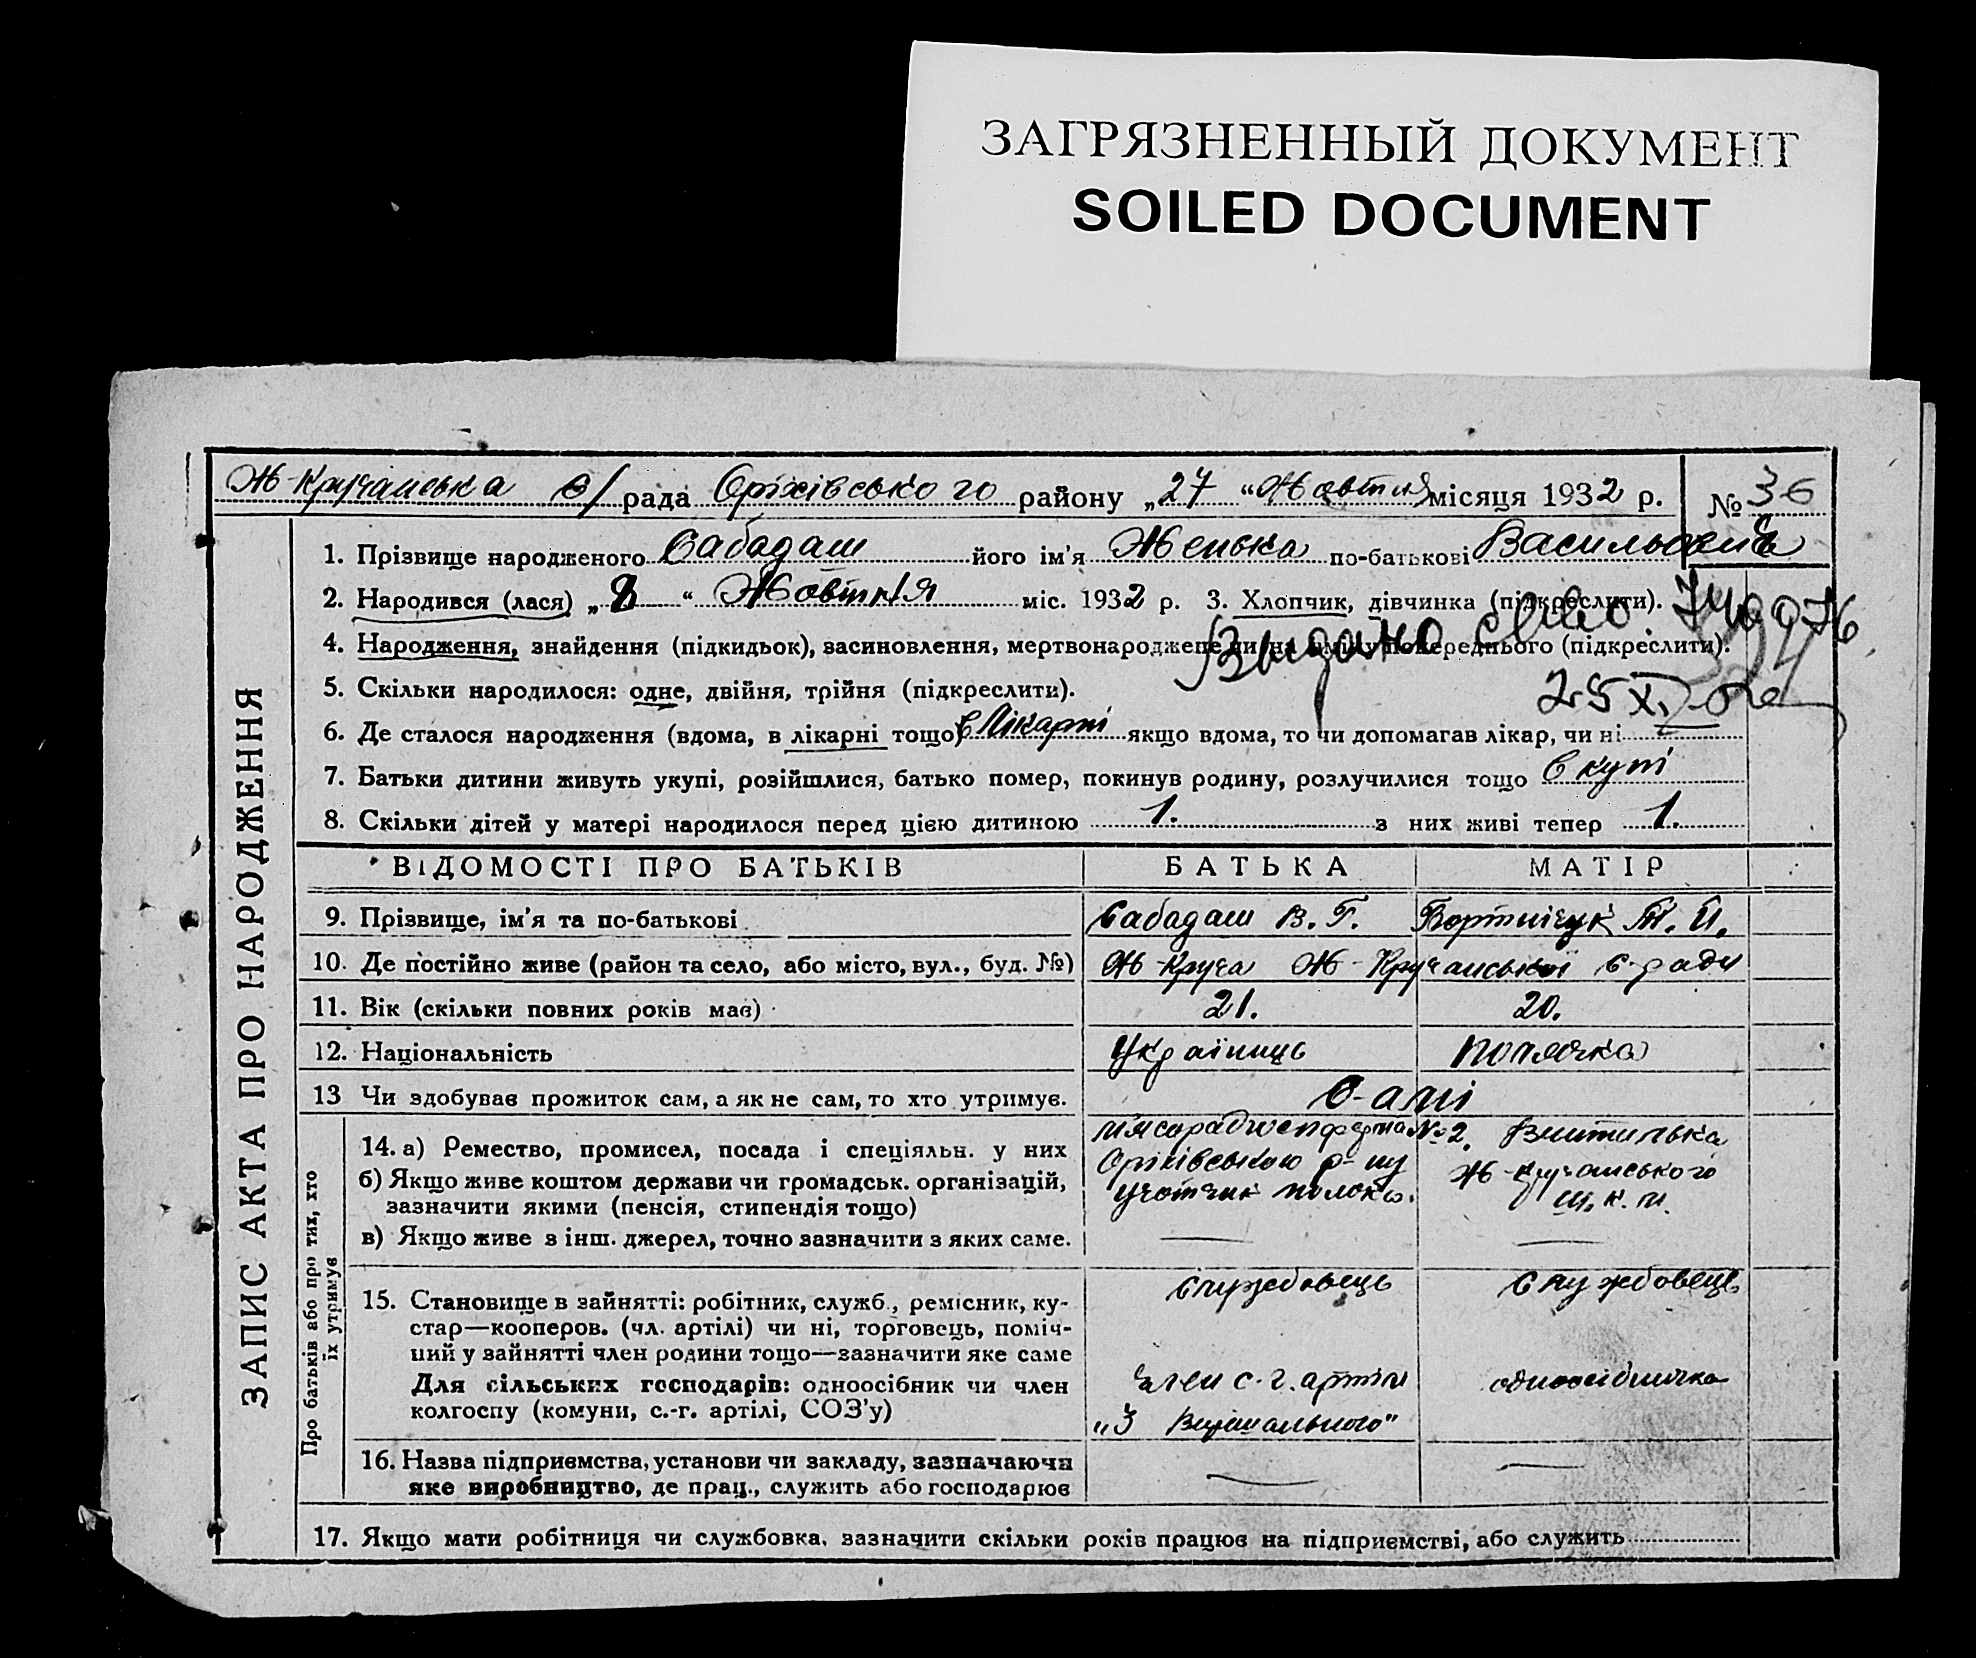 ЗАГРЯЗНЕННЫЙ ДОКУМЕНТ
SOILED DOCUMENT
Ж-Кручанська с/рада Оріхівського району „27“ Жовтня місяця 1932 р. № 36
ЗАПИС АКТА ПРО НАРОДЖЕННЯ
1. Прізвище народженого Сабадаш його ім'я Женька по-батькові Васильович
2. Народився (лася) „8“ Жовтня міс. 1932 р. 3. Хлопчик, дівчинка (підкреслити).
4. Народження, знайдення (підкидьок), засиновлення, мертвонароджене чи на зміну попереднього (підкреслити).
Выдано свид.
25 XI
5. Скільки народилося: одне, двійня, трійня (підкреслити).
6. Де сталося народження (вдома, в лікарні тощо) в Лікарні якщо вдома, то чи допомагав лікар, чи ні
7. Батьки дитини живуть укупі, розійшлися, батько помер, покинув родину, розлучилися тощо вкупі
8. Скільки дітей у матері народилося перед цією дитиною 1. з них живі тепер 1.
ВІДОМОСТІ ПРО БАТЬКІВ БАТЬКА МАТІР
9. Прізвище, ім'я та по-батькові Сабадаш В. Г. Бортнічук Т. Й.
10. Де постійно живе (район та село, або місто, вул., буд. №) Ж-Круча Ж-Кручанської с-ради
11. Вік (скільки повних років має) 21. 20.
12. Національність Українець полячка
13 Чи здобував прожиток сам, а як не сам, то хто утримує. Самі
Про батьків або про тих, хто
їх утримує
14. а) Ремество, промисел, посада і спеціяльн. у них
б) Якщо живе коштом держави чи громадськ. організацій,
зазначити якими (пенсія, стипендія тощо)
в) Якщо живе з інш. джерел, точно зазначити з яких саме.
№ 2.
Оріхівського р-ну
учотчик молока.
Вчителька
Ж-Кручанського
ш. к. м.
15. Становище в зайнятті: робітник, служб., ремісник, ку-
стар—кооперов. (чл. артілі) чи ні, торговець, поміч-
ний у зайнятті член родини тощо—зазначити яке саме
Для сільських господарів: одноосібник чи член
колгоспу (комуни, с.-г. артілі, СОЗ'у)
службовець службовець
член с. г. артіли одноосібничка
„3 Вирішального"
16. Назва підприємства, установи чи закладу, зазначаючи
яке виробництво, де прац., служить або господарює
17. Якщо мати робітниця чи службовка, зазначити скільки років працює на підприємстві, або служить